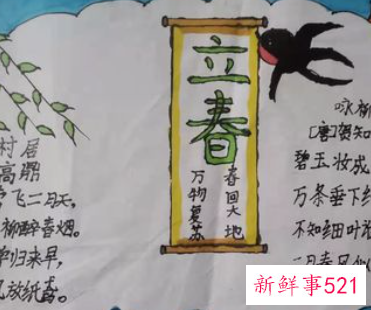 村居
高鼎
飞二月天,
柳醉春烟。
归来早,
放纸鸢。
立春
春回大地
万物复苏
咏柳
[唐]贺知
碧玉妆成
万条垂下
不知细叶
二月春风似
新鲜事521